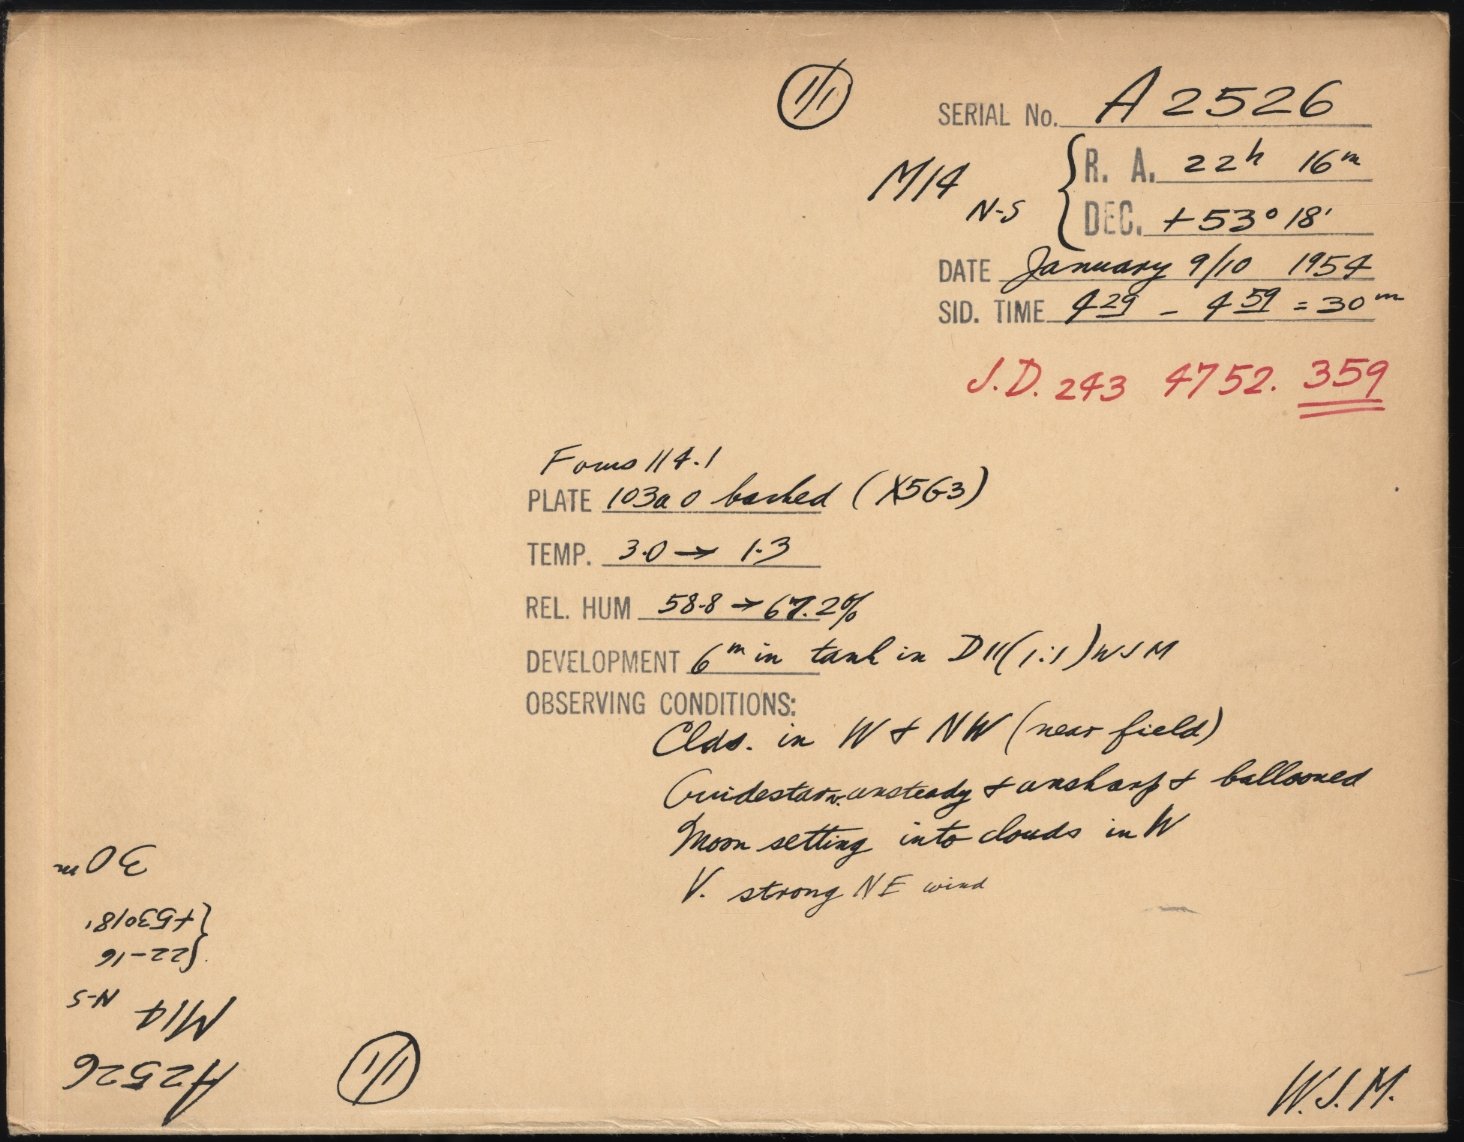 1/1
SERIAL No. A 2526
M14 N-S { R. A. 22h 16m
DEC. +53° 18'
DATE January 9/10 1954
SID. TIME 4 29 - 4 59 = 30 m
J.D. 243 4752. 359
Focus 114.1
PLATE 103a O backed (X5G3)
TEMP. 3.0 → 1.3
REL. HUM 58.8 → 67.2%
DEVELOPMENT 6m in tank in D11 (1:1) WJM
OBSERVING CONDITIONS:
Clds. in W & NW (near field)
Guidestar unsteady & unsharp & ballooned
Moon setting into clouds in W
V. strong NE wind
A2526
M14 N-S
{22-16
{+53°18'
30m
1/1
W.J.M.